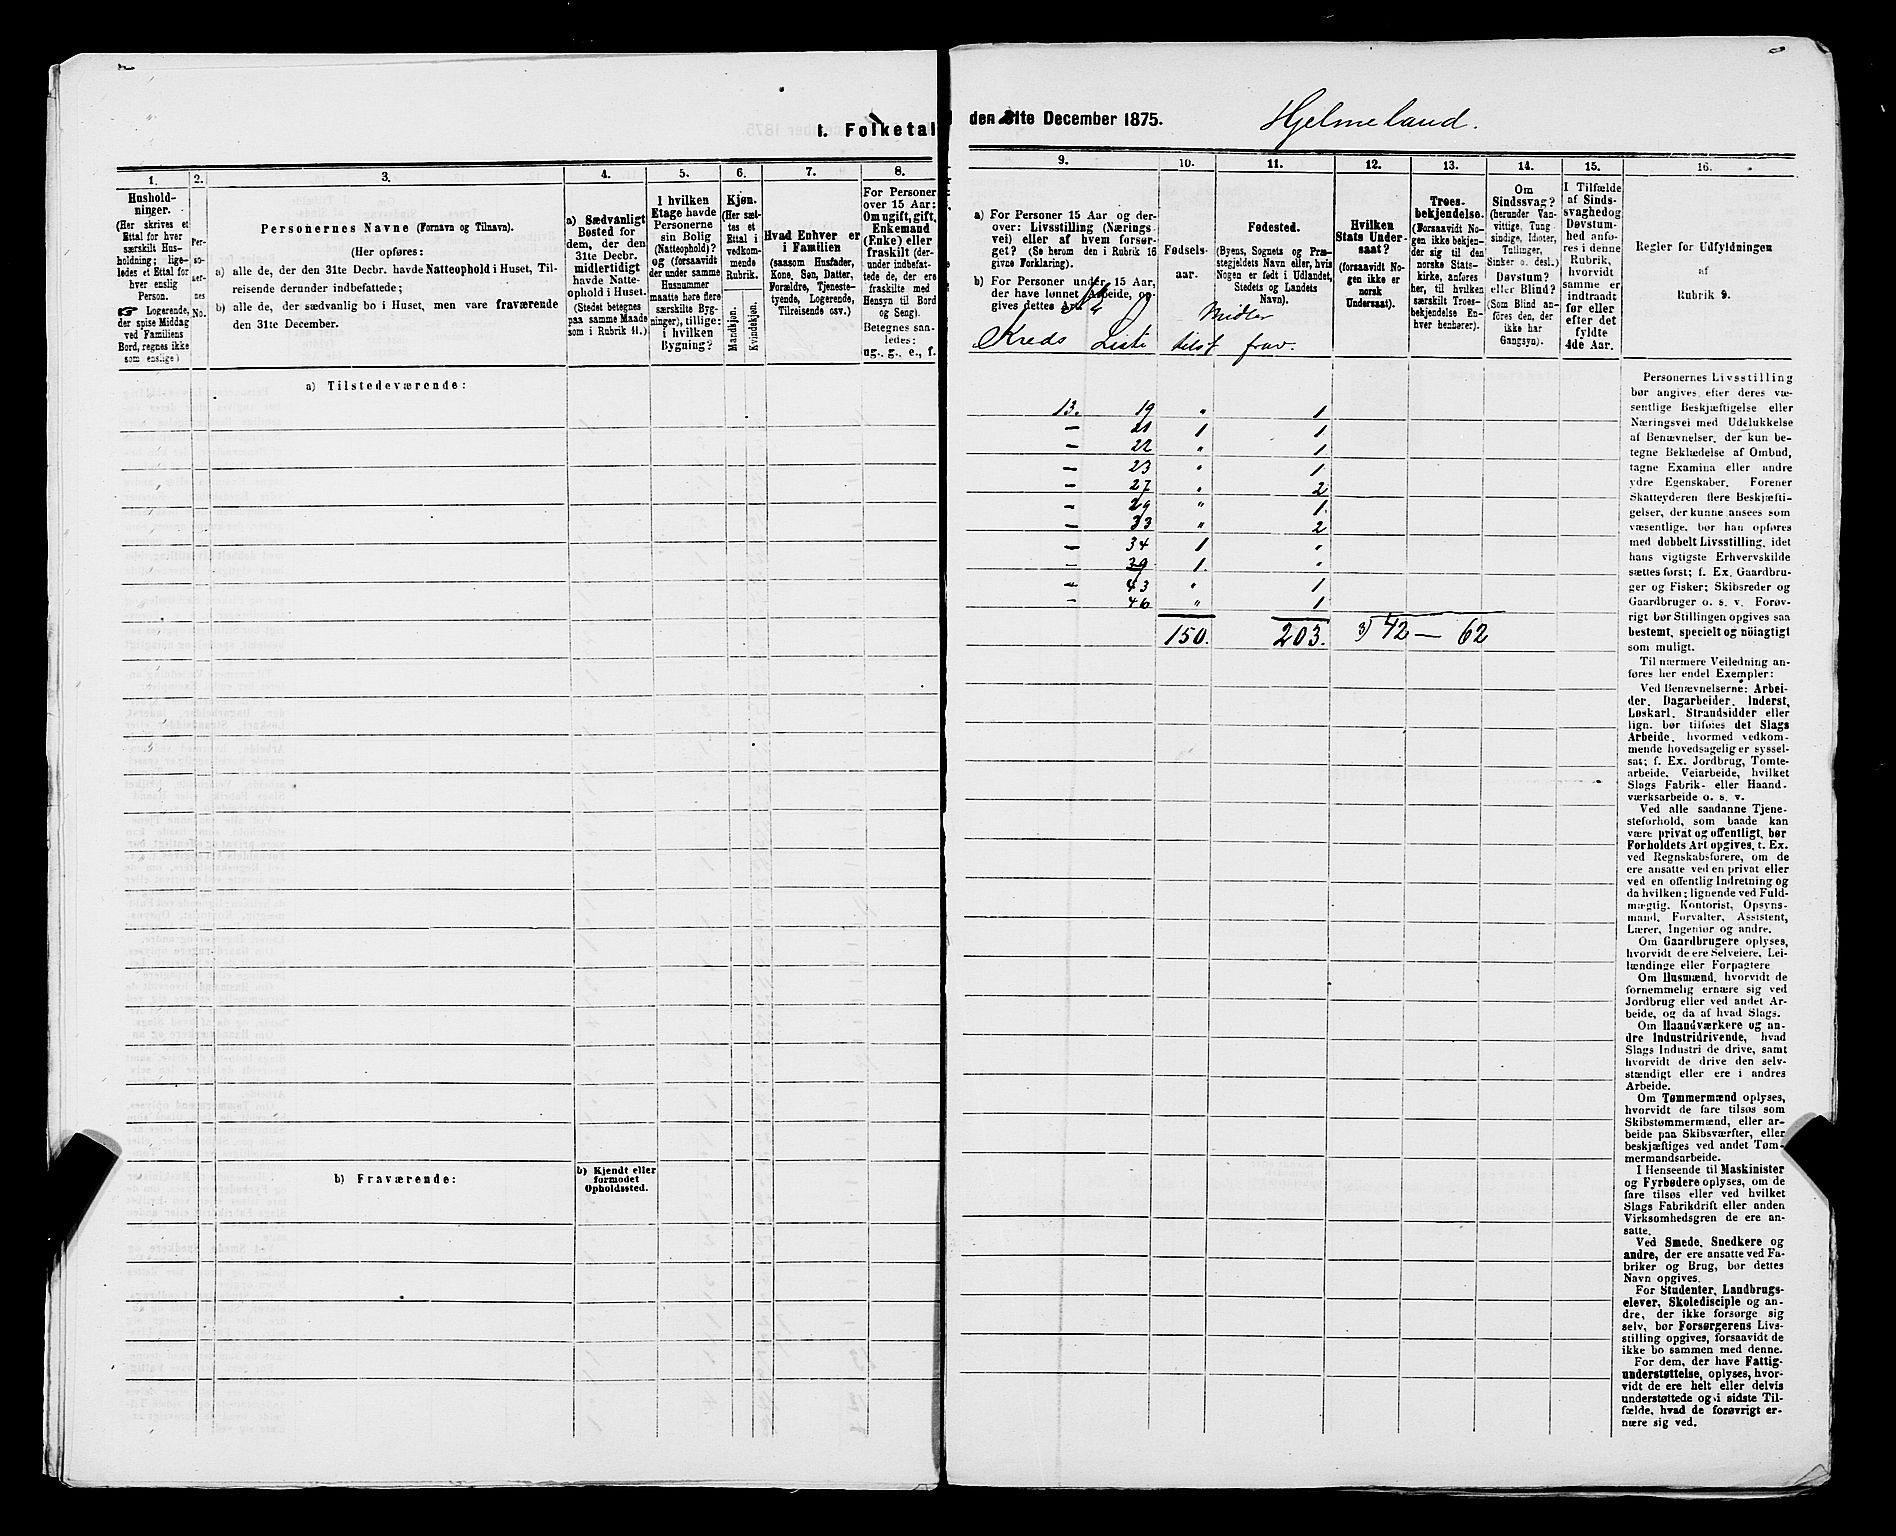 1. Folketal
den 31te December 1875.
Hjelmeland.
1.
Hushold-
ninger.
(Her skrives et
Ettal for hver
særskilt Hus-
holdning; lige-
ledes et Ettal for
hver enslig
Person.
☞ Logerende,
der spise Middag
ved Familiens
Bord, regnes ikke
som enslige)
2.
Per-
so-
ner-
nes
No.
3.
Personernes Navne (Fornavn og Tilnavn).
(Her opføres:
a) alle de, der den 31te Decbr. havde Natteophold i Huset, Til-
reisende derunder indbefattede;
b) alle de, der sædvanlig bo i Huset, men vare fraværende
den 31te December.
4.
a) Sædvanligt
Bosted for
dem, der den
31te Decbr.
midlertidigt
havde Natte-
ophold i Huset.
(Stedet betegnes
paa samme Maade
som i Rubrik 11.)
5.
I hvilken
Etage havde
Personerne
sin Bolig
(Natteophold)?
og (forsaavidt
der under samme
Husnummer
maatte høre flere
særskilte Byg-
ninger), tillige:
i hvilken
Bygning?
6.
Kjøn.
(Her sæt-
tes et
Ettal i
vedkom-
mende
Rubrik.
Mandkjøn.
Kvindekjøn.
7.
Hvad Enhver er
i Familien
(saasom Husfader,
Kone, Søn, Datter,
Forældre, Tjeneste-
tyende, Logerende,
Tilreisende osv.)
8.
For Personer
over 15 Aar:
Om ugift, gift,
Enkemand
(Enke) eller
fraskilt (der-
under indbefat-
tede de, der ere
fraskilte med
Hensyn til Bord
og Seng).
Betegnes saa-
ledes:
ug., g., e., f.
9.
a) For Personer 15 Aar og der-
over: Livsstilling (Nærings-
vei) eller af hvem forsør-
get? (Se herom den i Rubrik 16
givne Forklaring).
b) For Personer under 15 Aar,
der have lønnet Arbeide, op-
gives dettes Art.
10.
Fødsels-
aar.
11.
Fødested.
(Byens, Sognets og Præ-
stegjeldets Navn eller, hvis
Nogen er født i Udlandet,
Stedets og Landets
Navn).
12.
Hvilken
Stats Under-
saat?
(forsaavidt No-
gen ikke er
norsk
Undersaat).
13.
Troes-
bekjendelse.
(Forsaavidt No-
gen ikke bekjen-
der sig til den
norske Stats-
kirke, anføres
her, til hvilken
særskilt Troes-
bekjendelse En-
hver henhører).
14.
Om
Sindssvag?
(herunder Van-
vittige, Tung-
sindige, Idioter,
Tullinger,
Sinker o. desl.)
Døvstum?
eller Blind?
(Som Blind an-
føres den, der
ikke har
Gangsyn).
15.
I Tilfælde
af Sinds-
svaghed og
Døvstum-
hed anfø-
res i denne
Rubrik,
hvorvidt
samme er
indtraadt
før eller
efter det
fyldte
4de Aar.
16.
Regler for Udfyldningen
af
Rubrik 9.
Midler
Kreds Liste tilst frav.
a) Tilstedeværende:
13. 19 " 1
– 21 1 1
– 22 " 1
– 23 " 1
– 27 " 2
– 29 " 1.
– 33 " 2
– 34 1 "
– 39 1. "
– 43 " 1
– 46 " 1
150. 203. 3) 42 — 62
b) Fraværende:
b) Kjendt eller
formodet
Opholdssted.
Personernes Livsstilling
bør angives efter deres væ-
sentlige Beskjæftigelse eller
Næringsvei med Udelukkelse
af Benævnelser, der kun be-
tegne Beklædelse af Ombud,
tagne Examina eller andre
ydre Egenskaber. Forener
Skatteyderen flere Beskjæfti-
gelser, der kunne ansees som
væsentlige, bør han opføres
med dobbelt Livsstilling, idet
hans vigtigste Erhvervskilde
sættes først; f. Ex. Gaardbru-
ger og Fisker; Skibsreder og
Gaardbruger o. s. v. Forøv-
rigt bør Stillingen opgives saa
bestemt, specielt og nöiagtigt
som muligt.
Til nærmere Veiledning an-
føres her endel Exempler:
Ved Benævnelserne: Arbei-
der, Dagarbeider, Inderst,
Løskarl, Strandsidder eller
lign. bør tilføies det Slags
Arbeide, hvormed vedkom-
mende hovedsagelig er syssel-
sat; f. Ex. Jordbrug, Tomte-
arbeide, Veiarbeide, hvilket
Slags Fabrik- eller Haand-
værksarbeide o. s. v.
Ved alle saadanne Tjene-
steforhold, som baade kan
være privat og offentligt, bør
Forholdets Art opgives, t. Ex.
ved Regnskabsførere, om de
ere ansatte ved en privat eller
ved en offentlig Indretning og
da hvilken; lignende ved Fuld-
mægtig, Kontorist, Opsyns-
mand, Forvalter, Assistent,
Lærer, Ingeniør og andre.
Om Gaardbrugere oplyses,
hvorvidt de ere Selveiere, Lei-
lændinge eller Forpagtere
Om Husmænd, hvorvidt de
fornemmelig ernære sig ved
Jordbrug eller ved andet Ar-
beide, og da af hvad Slags.
Om Haandværkere og an-
dre Industridrivende, hvad
Slags Industri de drive, samt
hvorvidt de drive den selv-
stændigt eller ere i andres
Arbeide.
Om Tømmermænd oplyses,
hvorvidt de fare tilsøs som
Skibstømmermænd, eller ar-
beide paa Skibsværfter, eller
beskjæftiges ved andet Tøm-
mermandsarbeide.
I Henseende til Maskinister
og Fyrbødere oplyses, om de
fare tilsøs eller ved hvilket
Slags Fabrikdrift eller anden
Virksomhedsgren de ere an-
satte.
Ved Smede, Snedkere og
andre, der ere ansatte ved Fa-
briker og Brug, bør dettes
Navn opgives.
For Studenter, Landbrugs-
elever, Skoledisciple og an-
dre, der ikke forsørge sig
selv, bør Forsørgerens Livs-
stilling opgives, forsaavidt de
ikke bo sammen med denne.
For dem, der have Fattig-
understøttelse, oplyses, hvor-
vidt de ere helt eller delvis
understøttede og i sidste Til-
fælde, hvad de forøvrigt er-
nære sig ved.